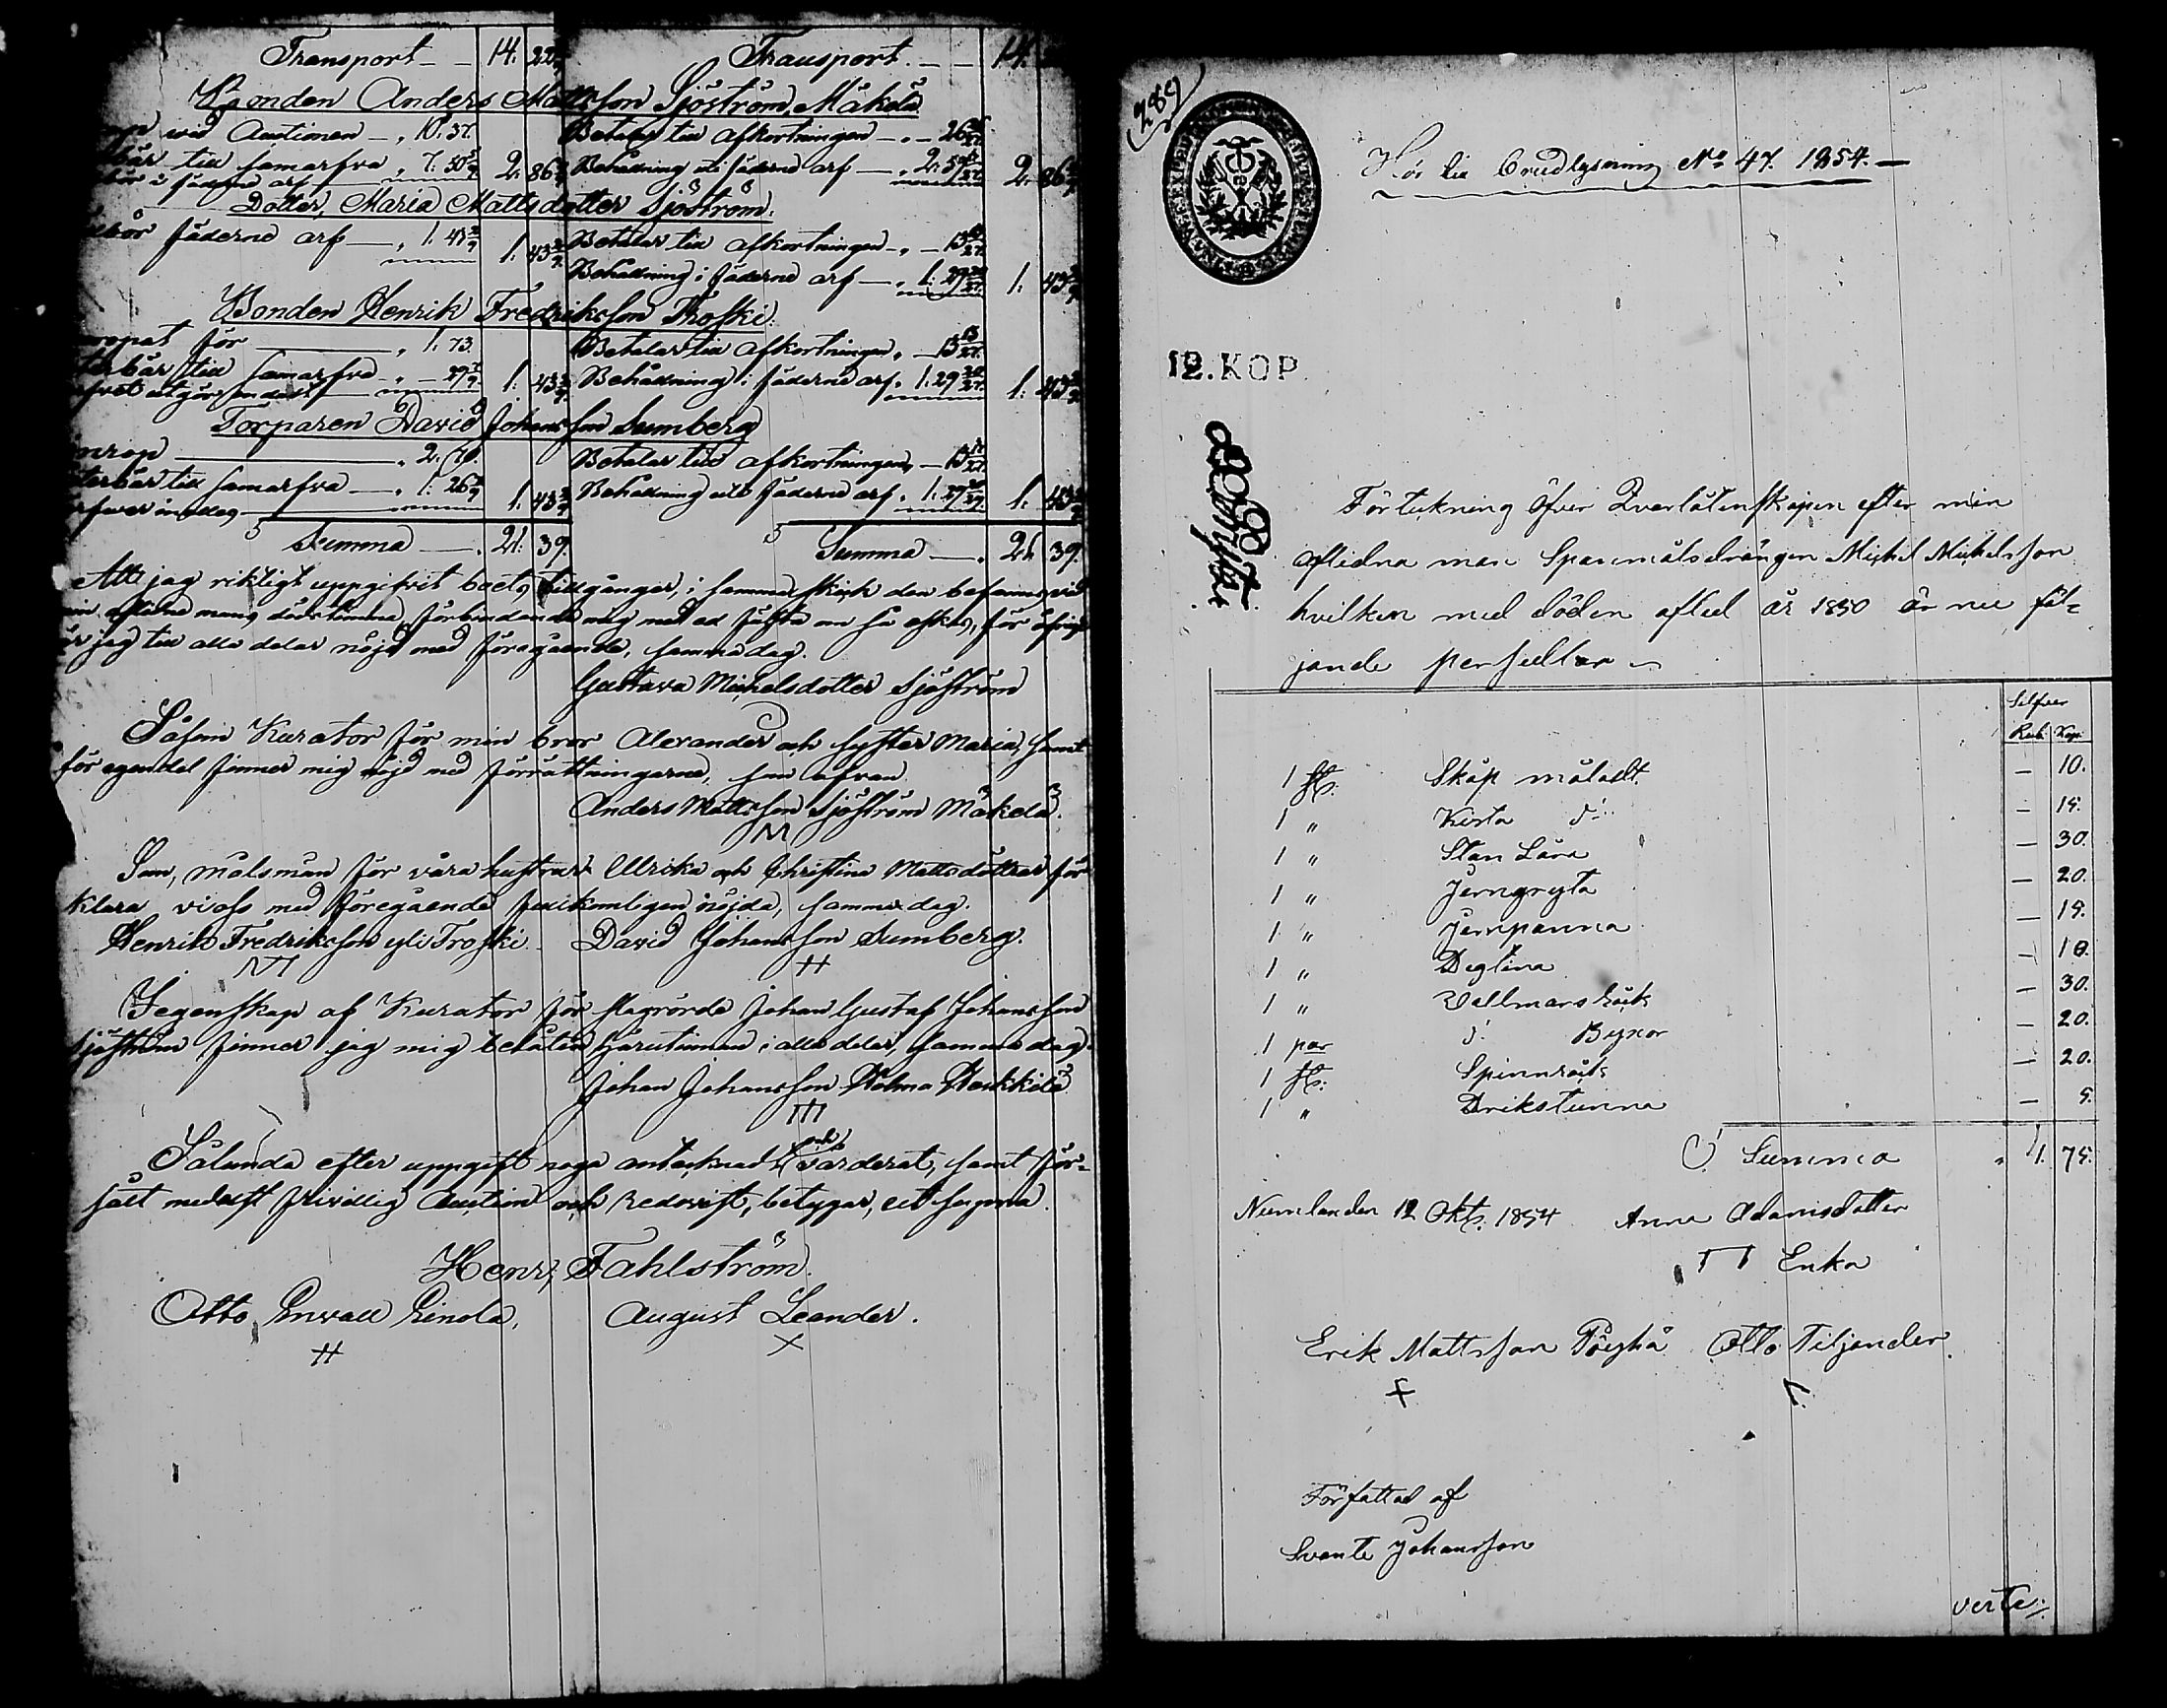 Transport 14. 22
Transport 14.
Bonden Anders Mattsson Sjöström Mäkelä
wid Auctionen 10. 37.
till samarfva 7. 50 5/9 2. 86
i fäderne arf
Betalar till afkortningen 26
Behållning uti fäderne arf 2. 59 2. 86
Dotter, Maria Mattsdotter Sjöström.
fäderne arf 1. 43 1. 43
Betalar till afkortningen 13
Behållning i fäderne arf 1. 29 1. 43
Bonden Henrik Fredriksson Troski.
för 1. 73.
till samarfva 29 1. 43
utgör endast
Betalar till afkortningen 13
Behållning i fäderne arf 1. 29 1. 43
Torparen David Johansson Sumberg
2. 70.
till samarfva 1. 26 1. 43
Betalar till afkortningen 13
Behållning uti fäderne arf 1. 29 1. 43
Summa 21. 39.
Summa 21. 39.
Att jag riktigt uppgifvit boets tillgångar, i samma skick den befanns vid
min aflidne mans dödstimma, förbindande mig med ed fästa om så äskas, för öfrigt
är jag till alla delar nöjd med föregående, samma dag.
Gustava Michelsdotter Sjöström
Såsom Kurator för min bror Alexander och syster Maria, samt
för egen del finner mig nöjd med förrättningarne, som ofvan.
Anders Mattsson Sjöström Mäkelä.
Som, målsmän för våra hustrur Ulrika och Christina Mattsdöttrar för-
klara vi oss med föregående fullkomligen nöjda, samma dag.
Henrik Fredriksson yli Troski. David Johansson Sumberg.
I egenskap af Kurator för Johan Gustaf Johansson
Sjöström finner jag mig belåten härutinnan i alla delar, samma dag.
Johan Johansson Heikkilä
Sålunda efter uppgift noga antecknad och värderat, samt för-
sålt medelst frivillig Auction och redovist, betygar, ut supra.
Henr. Fahlström.
Otto Enwall Einola, August Leander.
289
Hör till Crudlysning No 47. 1854.
12. KOP
Förtekning öfver Qvarlåtenskapen efter min
aflidna man Spanmålsdrängen Michel Michelsson
hvilken med döden afled år 1850 är nu föl-
jande persedlar
Silfver
Rub. Kop.
1 st. Skåp måladt — 10.
1 " Kista d:o — 15.
1 " Låra — 30.
1 " Jerngryta — 20.
1 " Jernpanna — 15.
1 " Degtina — 10.
1 " Vallmans Råck — 30.
1 par d:o Byxor — 20.
1 st. Spinnråck — 20.
1 " Drikstunna — 5.
Summa 1. 75.
Numlanden 12 Okt. 1854 Anna Adamsdotter
Enka
Erik Mattsson Pöyhä Otto Tiljander
Författad af
Svante Johansson
verte.